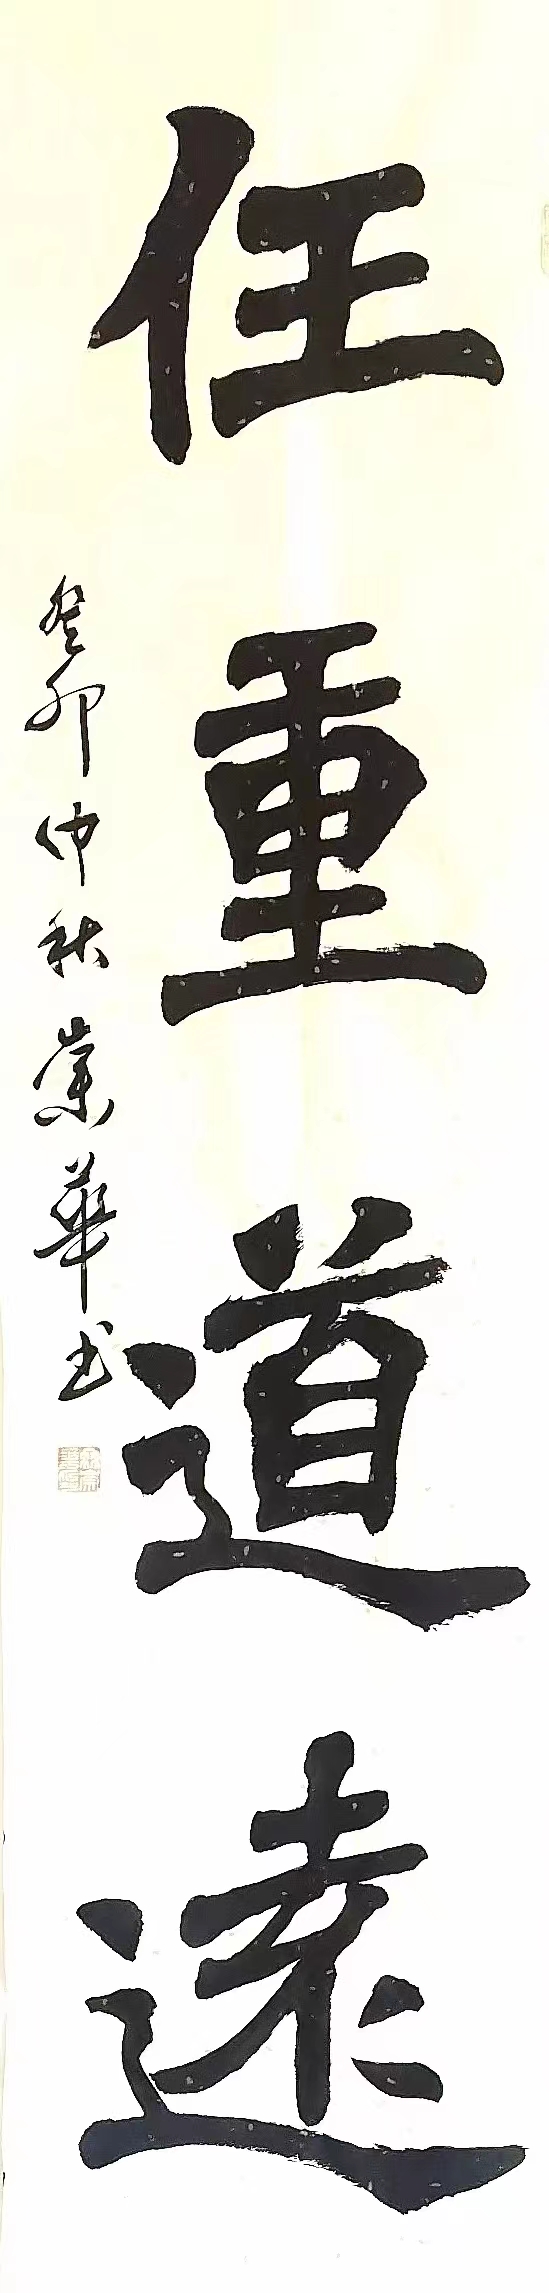 任重道遠
癸卯仲秋崇華书